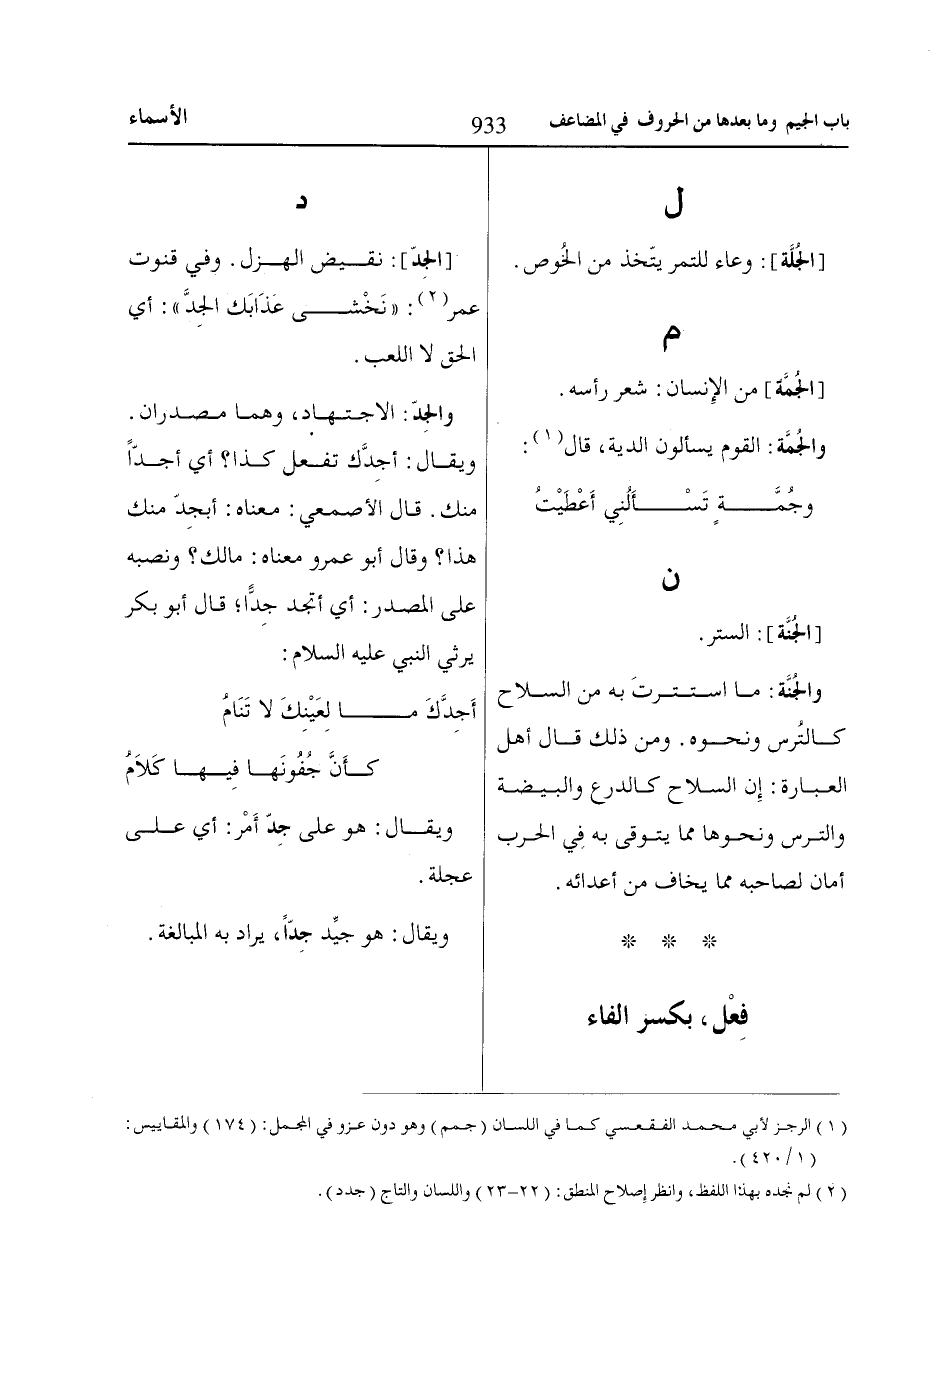 باب الجيم وما بعدها من الحروف في المضاعف 933 الأسماء
ل
[الجُلَّة]: وعاء للتمر يتّخذ من الخُوص.
م
[الجُمَّة] من الإنسان: شعر رأسه.
والجُمَّة: القوم يسألون الدية، قال(١):
وجُمَّةٍ تَسْأَلُني أَعْطَيْتُ
ن
[الجُنَّة]: الستر.
والجُنَّة: ما استترتَ به من السلاح
كالتُرس ونحوه. ومن ذلك قال أهل
العبارة: إن السلاح كالدرع والبيضة
والترس ونحوها مما يتوقى به في الحرب
أمان لصاحبه مما يخاف من أعدائه.
* * *
فِعْل، بكسر الفاء
د
[الجِدّ]: نقيض الهزل. وفي قنوت
عمر(٢): «نَخْشى عَذَابَك الجِدَّ»: أي
الحق لا اللعب.
والجِدّ: الاجتهاد، وهما مصدران.
ويقال: أجِدَّك تفعل كذا؟ أي أجِدّاً
منك. قال الأصمعي: معناه: أبجِدّ منك
هذا؟ وقال أبو عمرو معناه: مالك؟ ونصبه
على المصدر: أي أتجد جِدًّا؛ قال أبو بكر
يرثي النبي عليه السلام:
أَجِدَّكَ ما لِعَيْنِكَ لا تَنَامُ
كأنَّ جُفُونَها فيها كَلَامُ
ويقال: هو على جِدّ أَمْر: أي على
عجلة.
ويقال: هو جيِّد جِدّاً، يراد به المبالغة.
(١) الرجز لأبي محمد الفقعسي كما في اللسان (جمم) وهو دون عزو في المجمل: (١٧٤) والمقاييس:
(١/ ٤٢٠).
(٢) لم نجده بهذا اللفظ، وانظر إصلاح المنطق: (٢٢-٢٣) واللسان والتاج (جدد).